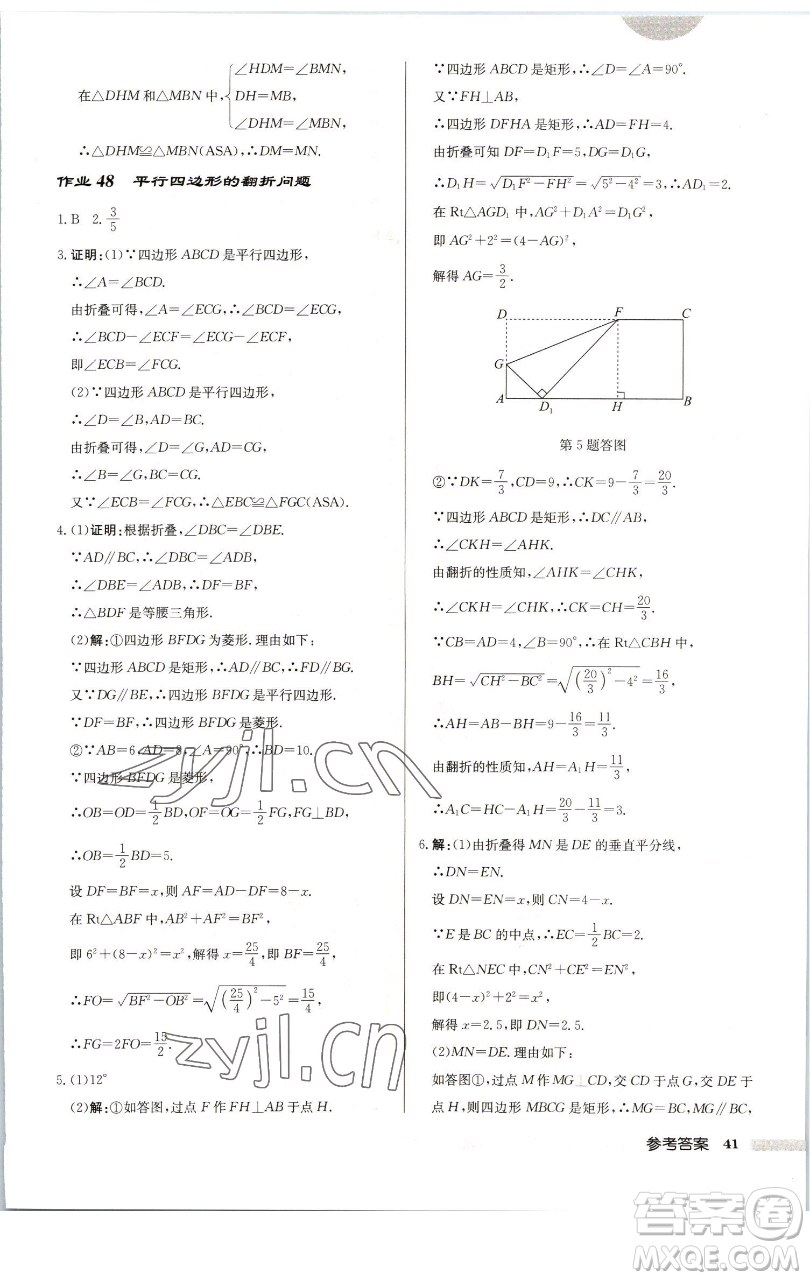 ∠HDM=∠BMN,
在△DHM和△MBN中,{DH=MB,
∠DHM=∠MBN,
∴△DHM≌△MBN(ASA).∴DM=MN.
作业48 平行四边形的翻折问题
1.B 2.3/5
3.证明:(1)∵四边形ABCD是平行四边形,
∴∠A=∠BCD.
由折叠可得,∠A=∠ECG,∴∠BCD=∠ECG,
∴∠BCD-∠ECF=∠ECG-∠ECF,
即∠ECB=∠FCG.
(2)∵四边形ABCD是平行四边形,
∴∠D=∠B,AD=BC.
由折叠可得,∠D=∠G,AD=CG,
∴∠B=∠G,BC=CG.
又∵∠ECB=∠FCG,∴△EBC≌△FGC(ASA).
4.(1)证明:根据折叠,∠DBC=∠DBE.
∵AD∥BC,∴∠DBC=∠ADB,
∴∠DBE=∠ADB,∴DF=BF,
∴△BDF是等腰三角形.
(2)解:①四边形BFDG为菱形.理由如下:
∵四边形ABCD是矩形,∴AD∥BC,∴FD∥BG.
又∵DG∥BE,∴四边形BFDG是平行四边形.
∵DF=BF,∴四边形BFDG是菱形.
②∵AB=6,AD=8,∠A=90°,∴BD=10.
∵四边形BFDG是菱形,
∴OB=OD=1/2BD,OF=OG=1/2FG,FG⊥BD,
∴OB=1/2BD=5.
设DF=BF=x,则AF=AD-DF=8-x.
在Rt△ABF中,AB²+AF²=BF²,
即6²+(8-x)²=x²,解得x=25/4,即BF=25/4,
∴FO=√(BF²-OB²)=√((25/4)²-5²)=15/4,
∴FG=2FO=15/2.
5.(1)12°
(2)解:①如答图,过点F作FH⊥AB于点H.
∵四边形ABCD是矩形,∴∠D=∠A=90°.
又∵FH⊥AB,
∴四边形DFHA是矩形,∴AD=FH=4.
由折叠可知DF=D₁F=5,DG=D₁G,
∴D₁H=√(D₁F²-FH²)=√(5²-4²)=3,∴AD₁=2.
在Rt△AGD₁中,AG²+D₁A²=D₁G²,
即AG²+2²=(4-AG)²,
解得AG=3/2.
D F C
G
A D₁ H B
第5题答图
②∵DK=7/3,CD=9,∴CK=9-7/3=20/3.
∵四边形ABCD是矩形,∴DC∥AB,
∴∠CKH=∠AHK.
由翻折的性质知,∠AHK=∠CHK,
∴∠CKH=∠CHK,∴CK=CH=20/3.
∵CB=AD=4,∠B=90°,∴在Rt△CBH中,
BH=√(CH²-BC²)=√((20/3)²-4²)=16/3,
∴AH=AB-BH=9-16/3=11/3.
由翻折的性质知,AH=A₁H=11/3,
∴A₁C=HC-A₁H=20/3-11/3=3.
6.解:(1)由折叠得MN是DE的垂直平分线,
∴DN=EN.
设DN=EN=x,则CN=4-x.
∵E是BC的中点,∴EC=1/2BC=2.
在Rt△NEC中,CN²+EC²=EN²,
即(4-x)²+2²=x²,
解得x=2.5,即DN=2.5.
(2)MN=DE.理由如下:
如答图①,过点M作MG⊥CD,交CD于点G,交DE于
点H,则四边形MBCG是矩形,∴MG∥BC,
参考答案 41
zyjl.cn
zyjl.cn
答案圈
MXQE.COM